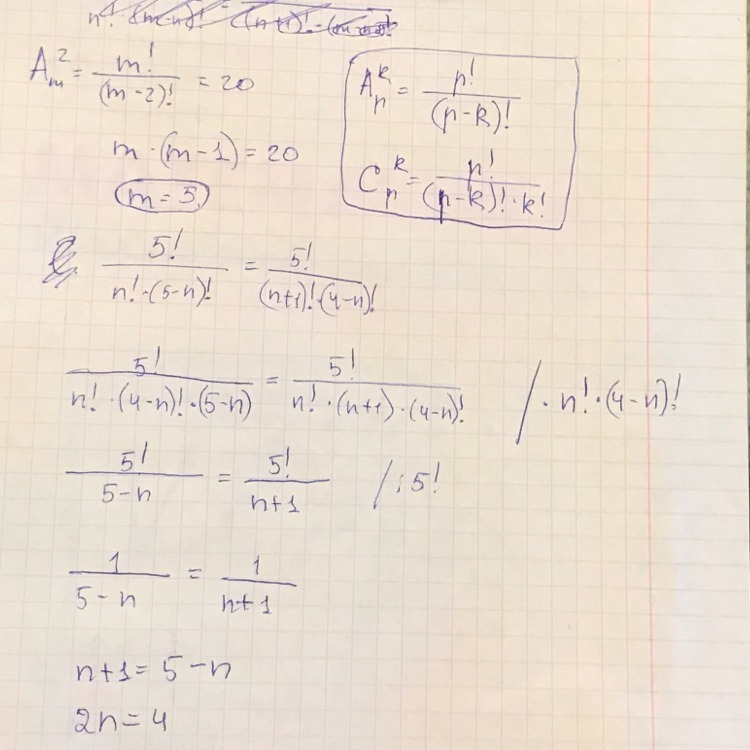 A_m^2 = m! / (m-2)! = 20
m · (m-1) = 20
m = 5
A_n^k = n! / (n-k)!
C_n^k = n! / ((n-k)! · k!)
5! / (n! · (5-n)!) = 5! / ((n+1)! · (4-n)!)
5! / (n! · (4-n)! · (5-n)) = 5! / (n! · (n+1) · (4-n)!) / · n! · (4-n)!
5! / (5-n) = 5! / (n+1) / : 5!
1 / (5-n) = 1 / (n+1)
n+1 = 5-n
2n = 4